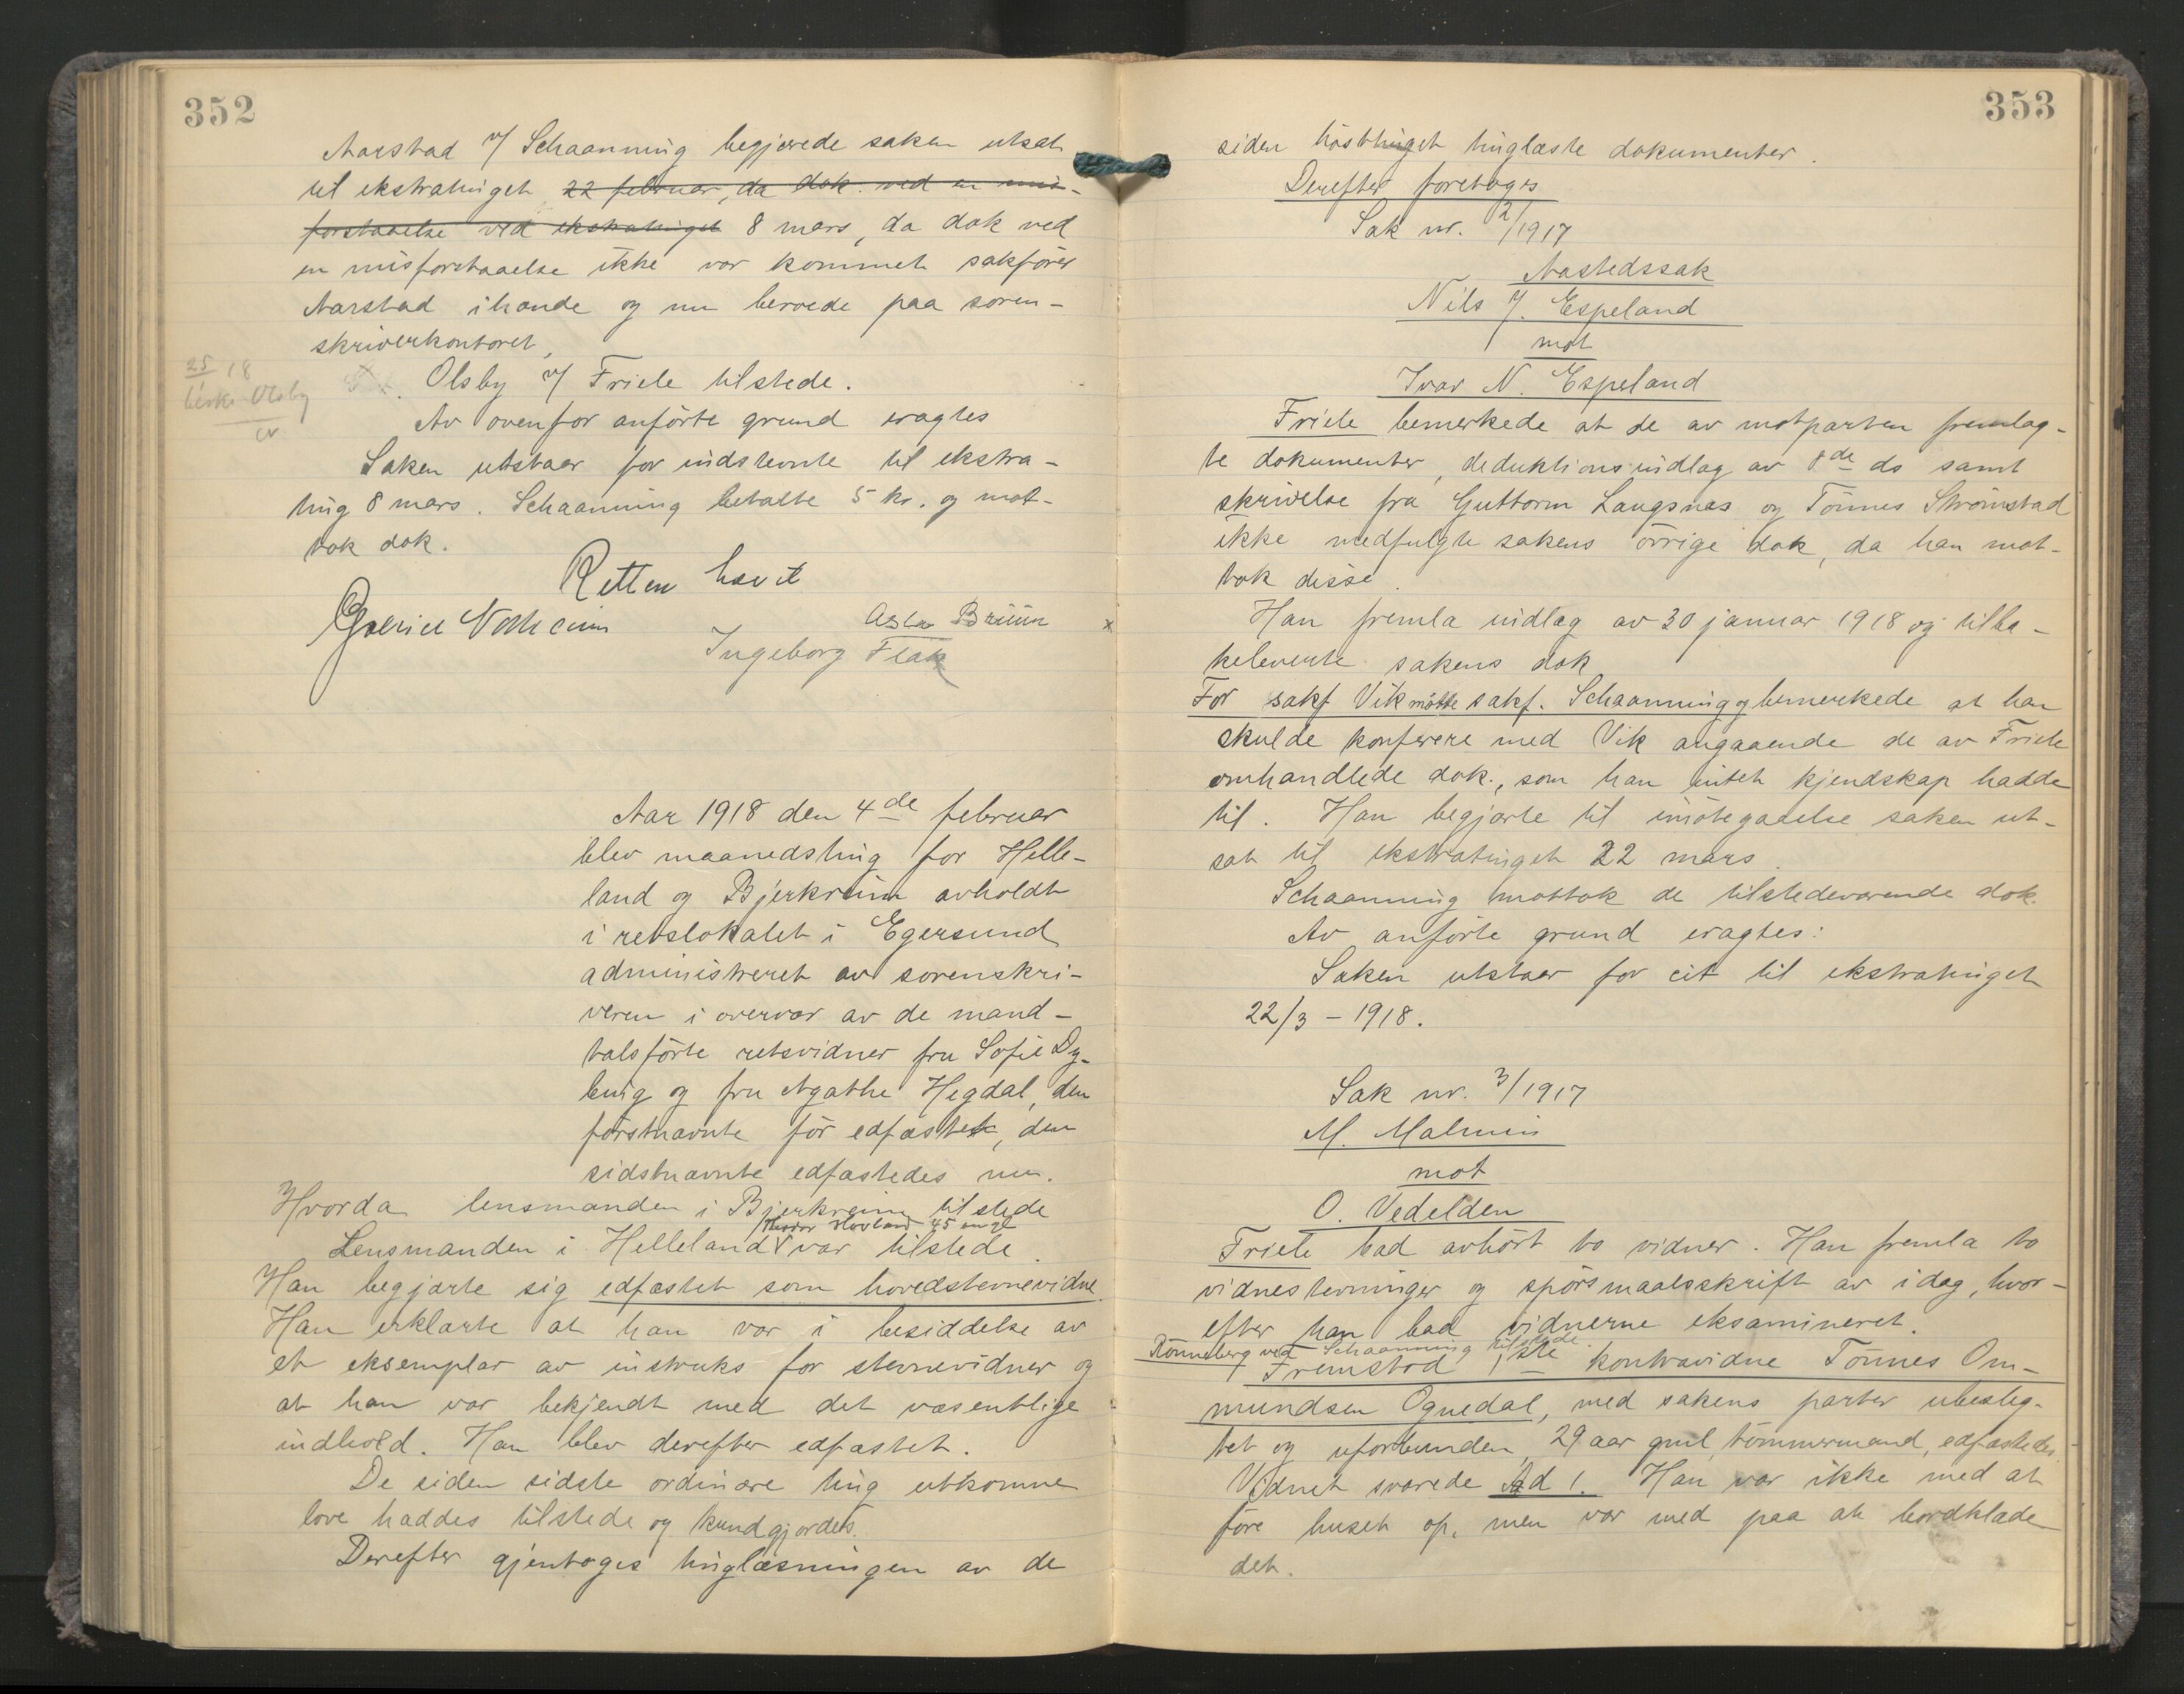 352
Aarstad v/ Schaanning begjærede saken utsat
til ekstratinget 22 februar, da dok. ved en mis-
forstaaelse ved ekstratinget 8 mars, da dok ved
en misforstaaelse ikke var kommet sakfører
Aarstad ihænde og nu beroede paa soren-
skriverkontoret,
25 18
Olsby
Olsby v/ Friele tilstede.
Av ovenfor anførte grund eragtes
Saken utstaar for indstevnte til ekstra-
ting 8 mars. Schaanning betalte 5 kr. og mot-
tok dok.
Retten hævet
Asta Bruun
Ingeborg Flak
Aar 1918 den 4de februar
blev maanedsting for Helle-
land og Bjerkreim avholdt
i retslokalet i Egersund
administreret av sorenskri-
veren i overvær av de mand-
talsførte retsvidner fru Sofie Dy-
bing og fru Agathe Hegdal, den
førstnævnte før edfæstet, den
sidstnævnte edfæstedes nu.
Hvorda lensmanden i Bjerkreim tilstede
Theodor Hovland 45 aar gl
Lensmanden i Helleland var tilstede.
Han begjærte sig edfæstet som hovedstevnevidne.
Han erklærte at han var i besiddelse av
et eksemplar av instruks for stevnevidner og
at han var bekjendt med det væsentlige
indhold. Han blev derefter edfæstet.
De siden sidste ordinære ting utkomne
love haddes tilstede og kundgjordes.
Derefter gjentoges tinglæsningen av de
353
siden høsttinget tinglæste dokumenter.
Derefter foretoges
Sak nr. 2/1917
Aastedssak
Nils J. Espeland
mot
Ivar N. Espeland
Friele bemerkede at de av motparten fremlag-
te dokumenter, deduktionsindlæg av 8de ds samt
skrivelse fra Guttorm Laugsnæs og Tønnes Strømstad
ikke medfulgte sakens øvrige dok, da han mot-
tok disse.
Han fremla indlæg av 30 januar 1918 og tilba-
keleverte sakens dok
For sakf Vik møtte sakf. Schaanning og bemerkede at han
skulde konferere med Vik angaaende de av Friele
omhandlede dok., som han intet kjendskap hadde
til. Han begjærte til imøtegaaelse saken ut-
sat til ekstratinget 22 mars.
Schaanning mottok de tilstedeværende dok.
Av anførte grund eragtes:
Saken utstaar for cit til ekstratinget
22/3 - 1918.
Sak nr. 3/1917
M. Malmin
mot
O. Vedelden
Friele bad avhørt to vidner. Han fremla to
vidnestevninger og spørsmaalsskrift av idag, hvor-
efter han bad vidnerne eksamineret.
Rønneberg ved Schaanning tilstede.
Fremstod 1ste kontravidne Tønnes Om-
mundsen Ognedal, med sakens parter ubeslæg-
tet og uforbunden, 29 aar gml, tømmermand, edfæstedes.
Vidnet svarede Ad 1. Han var ikke med at
føre huset op, men var med paa at bordklæde
det.